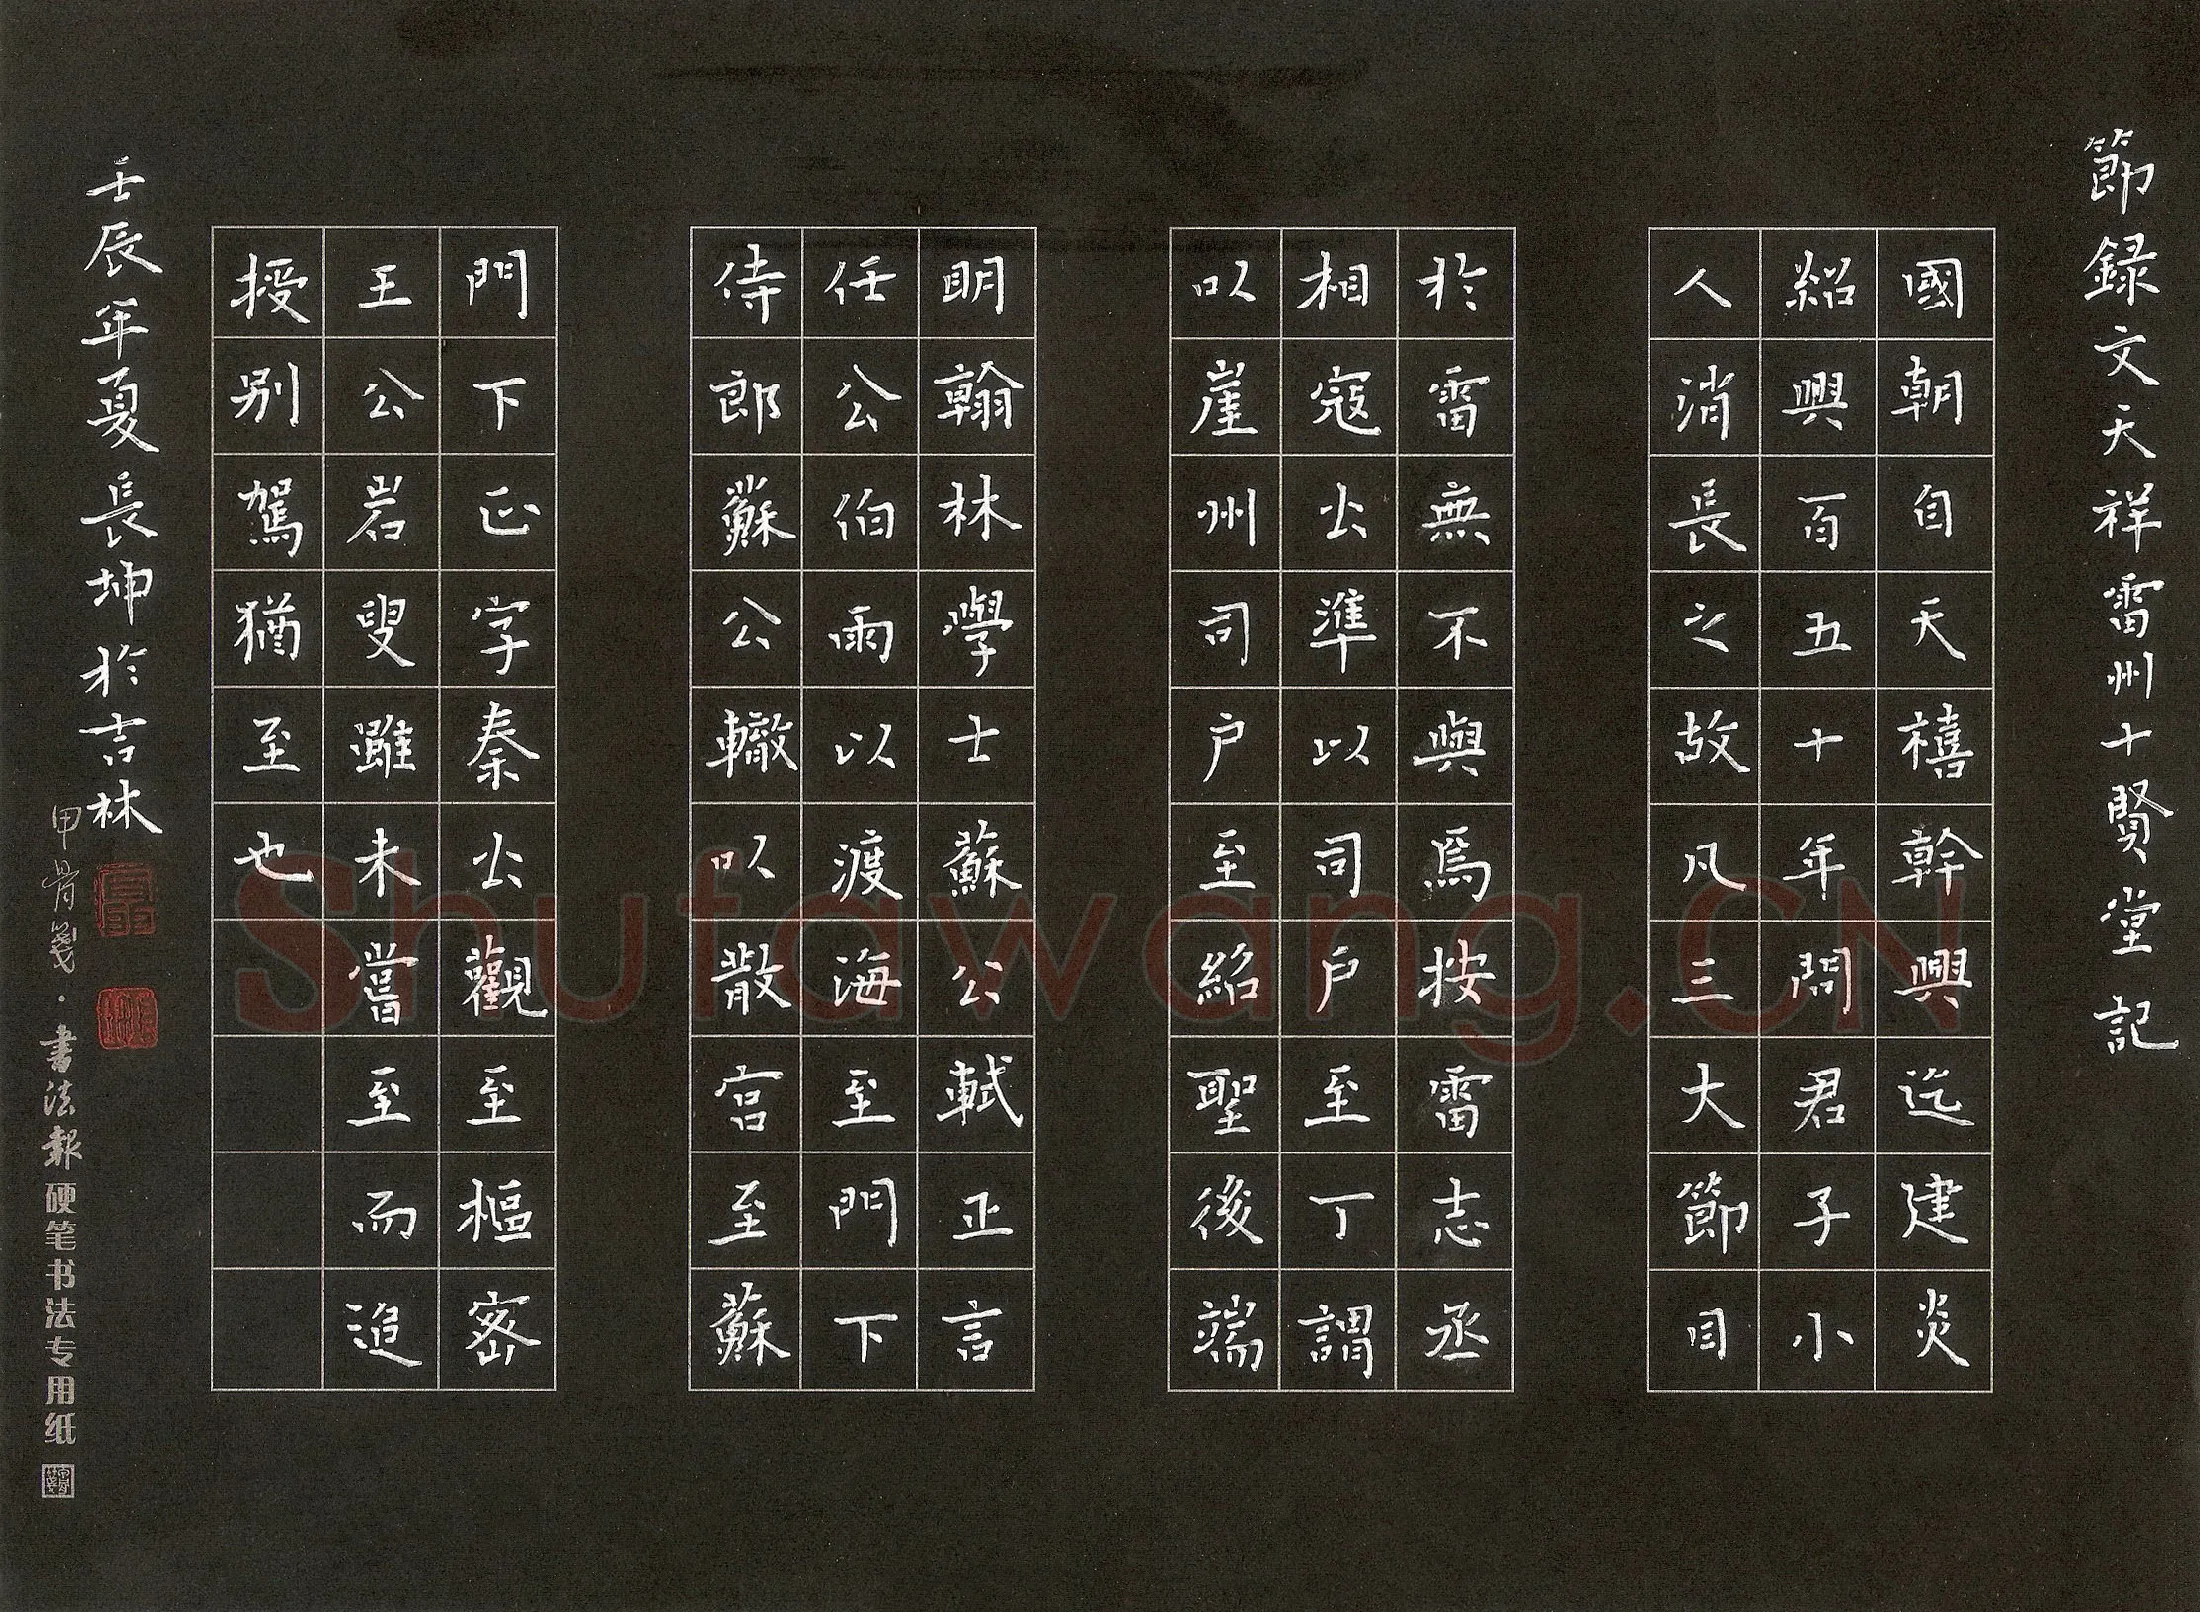 節録文天祥雷州十賢堂記
國朝自天禧幹興迄建炎
紹興百五十年間君子小
人消長之故凡三大節目
於雷無不與焉按雷志丞
相寇公準以司户至丁謂
以崖州司户至紹聖後端
明翰林學士蘇公軾正言
任公伯雨以渡海至門下
侍郎蘇公轍以散官至蘇
門下正字秦公觀至樞密
王公岩叟雖未嘗至而追
授别駕猶至也
壬辰年夏長坤於吉林
甲骨箋·書法報硬笔书法专用纸
Shufawang.CN